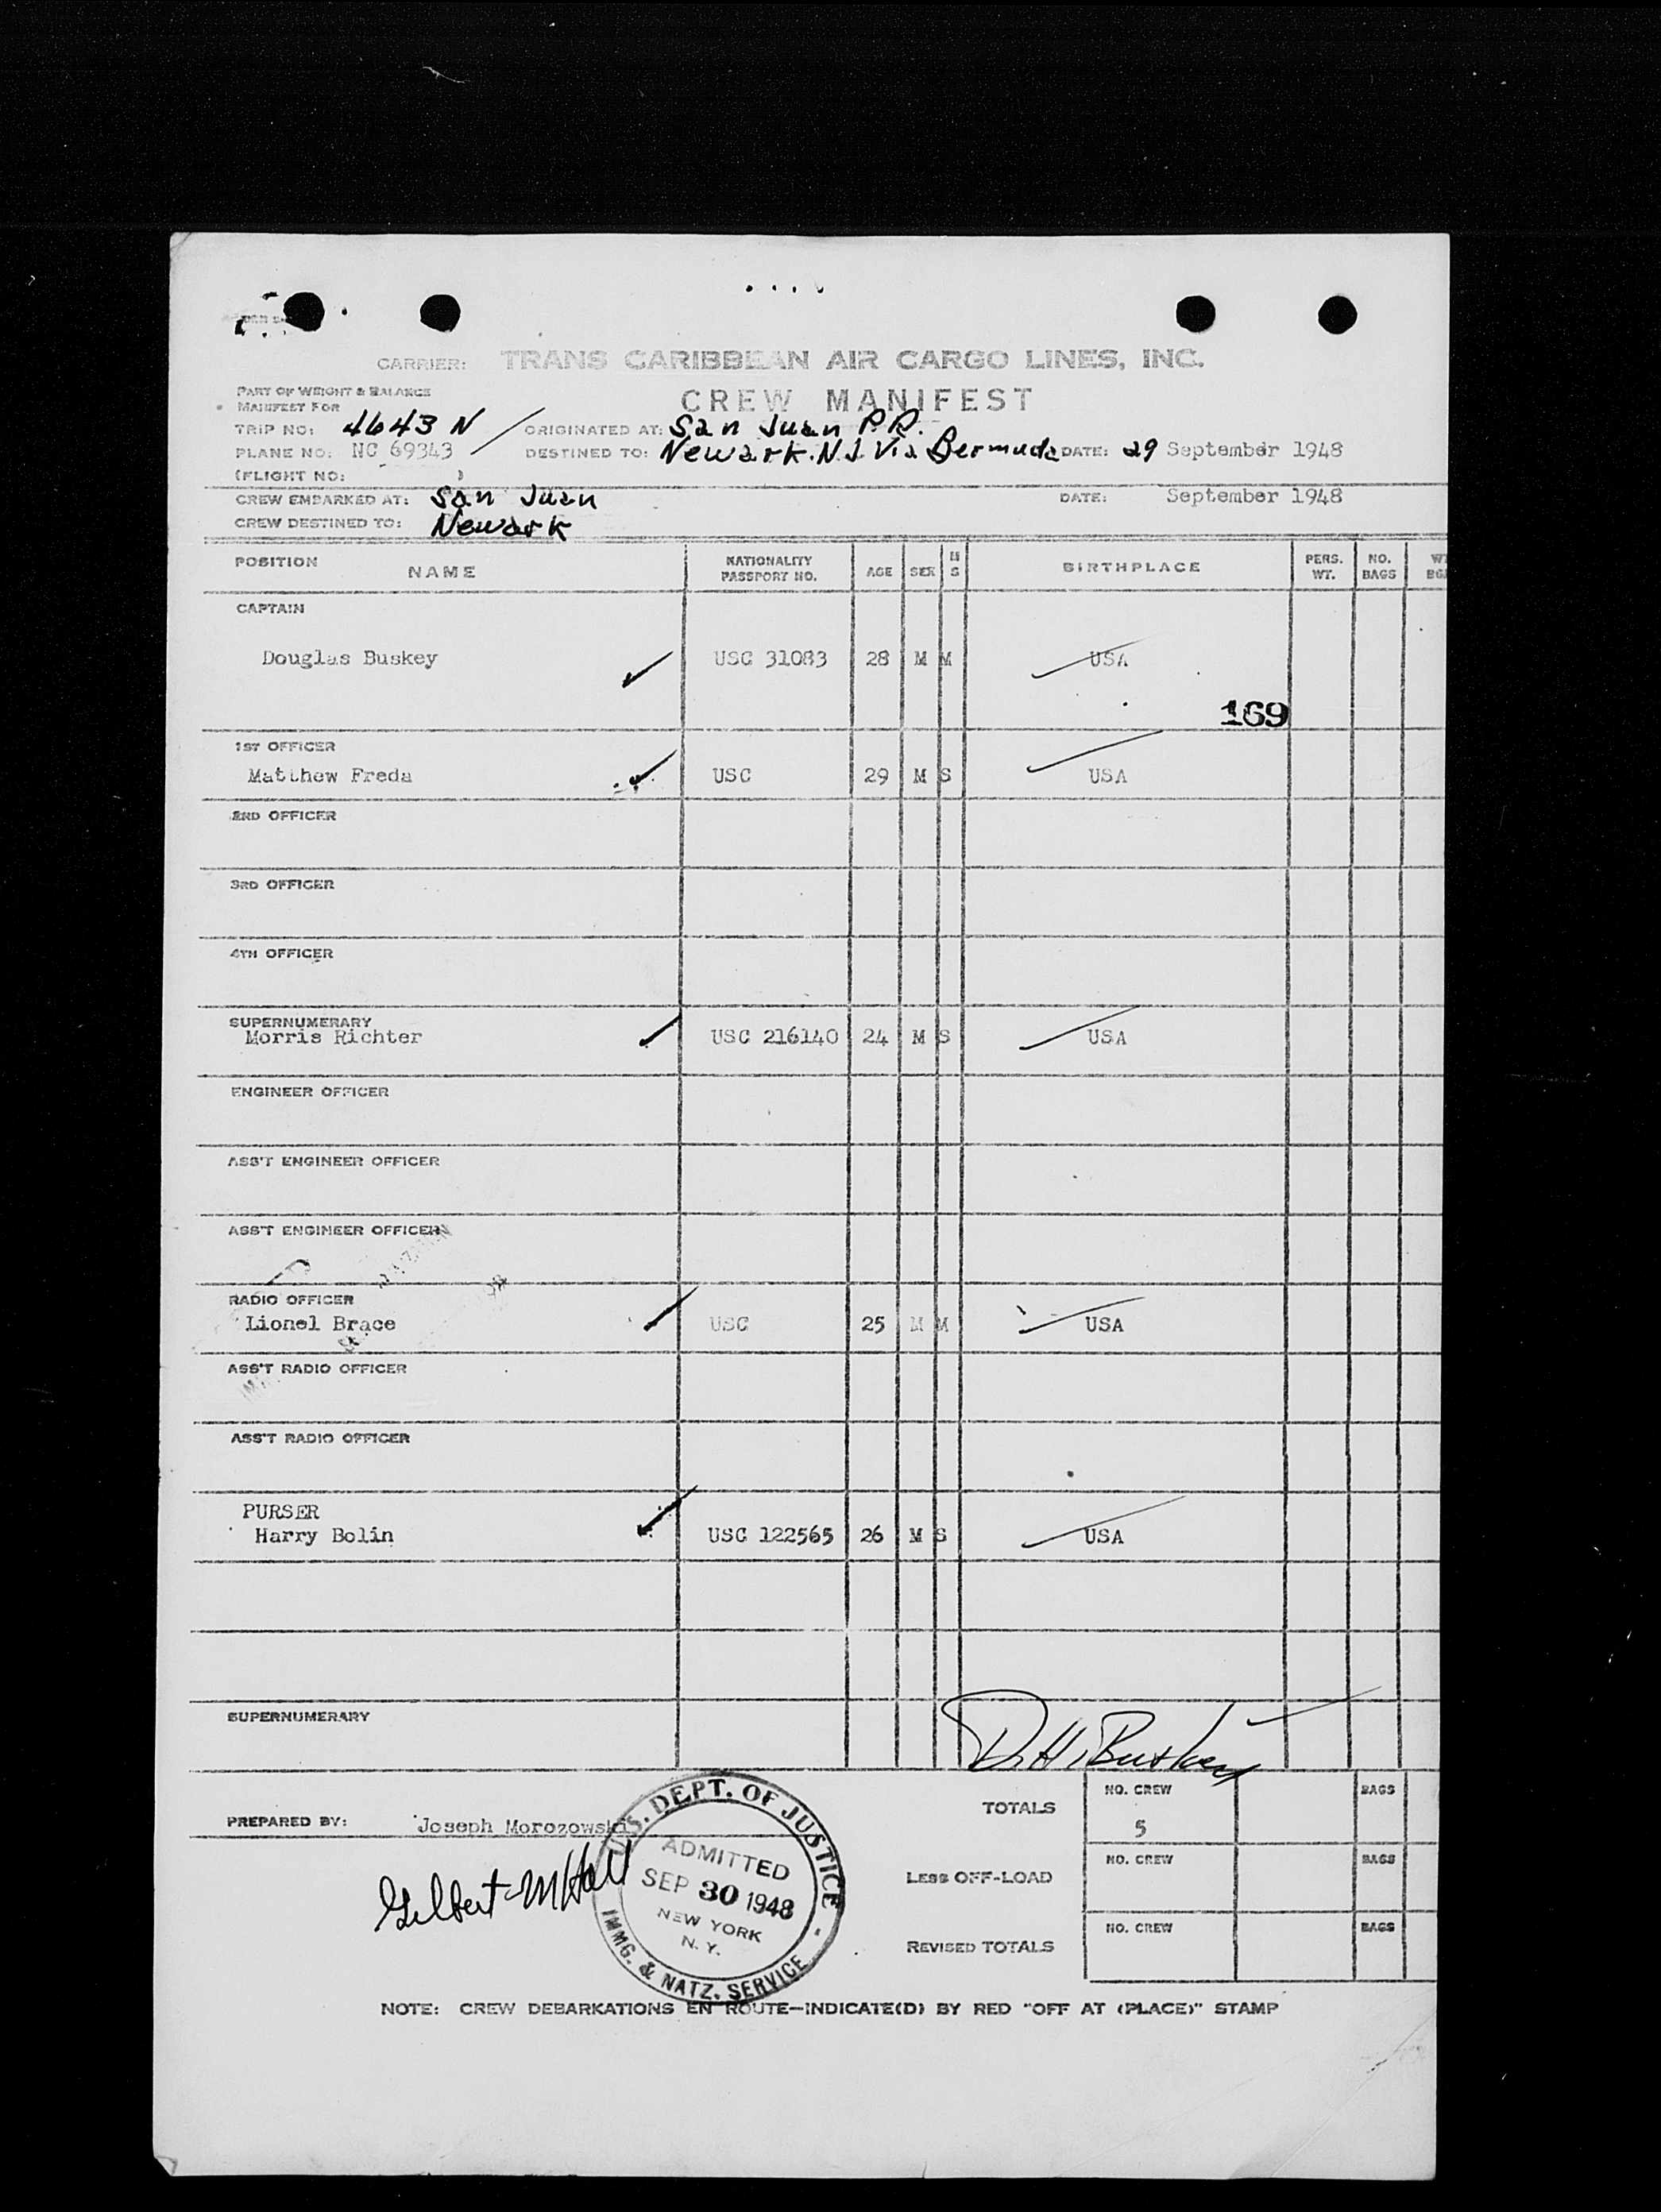 CARRIER: TRANS CARIBBEAN AIR CARGO LINES, INC.
PART OF WEIGHT & BALANCE
MANIFEST FOR
CREW MANIFEST
TRIP NO: 4643 N ORIGINATED AT: San Juan P.R.
PLANE NO: NC 69343 DESTINED TO: Newark. NJ Via Bermuda DATE: 29 September 1948
(FLIGHT NO: )
CREW EMBARKED AT: San Juan DATE: September 1948
CREW DESTINED TO: Newark
POSITION NAME NATIONALITY PASSPORT NO. AGE SEX M S BIRTHPLACE PERS. WT. NO. BAGS
CAPTAIN
Douglas Buskey USC 31083 28 M M USA
169
1ST OFFICER
Matthew Freda USC 29 M S USA
2ND OFFICER
3RD OFFICER
4TH OFFICER
SUPERNUMERARY
Morris Richter USC 216140 24 M S USA
ENGINEER OFFICER
ASS'T ENGINEER OFFICER
ASS'T ENGINEER OFFICER
RADIO OFFICER
Lionel Brace USC 25 M M USA
ASS'T RADIO OFFICER
ASS'T RADIO OFFICER
PURSER
Harry Bolin USC 122565 26 M S USA
SUPERNUMERARY
D. H. Buskey
PREPARED BY: Joseph Morozowski
TOTALS NO. CREW BAGS
5
LESS OFF-LOAD NO. CREW BAGS
REVISED TOTALS NO. CREW BAGS
Gilbert M Hall
U.S. DEPT. OF JUSTICE
ADMITTED
SEP 30 1948
NEW YORK
N. Y.
IMMG. & NATZ. SERVICE
NOTE: CREW DEBARKATIONS EN ROUTE—INDICATE(D) BY RED "OFF AT (PLACE)" STAMP